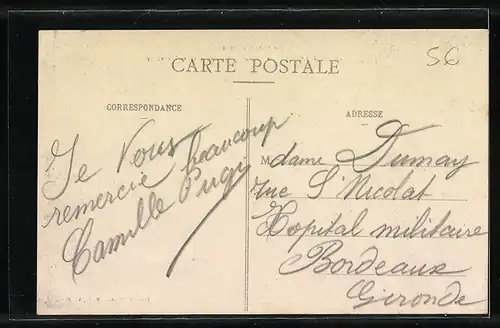 CARTE POSTALE
56
CORRESPONDANCE
ADRESSE
Je Vous
remercie beaucoup
Camille Pugi
Madame Dumay
rue St Nicolat
Hopital militaire
Bordeaux
Gironde